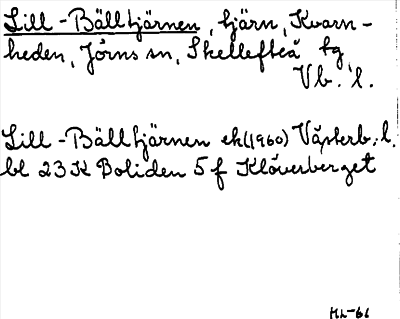 Lill-Bälltjärnen, tjärn, Kvarn-
heden, Jörns sn, Skellefteå tg,
Vb. l.
Lill-Bälltjärnen ek(1960) Västerb. l.
bl 23 K Boliden 5 f Klöverberget
ML-66